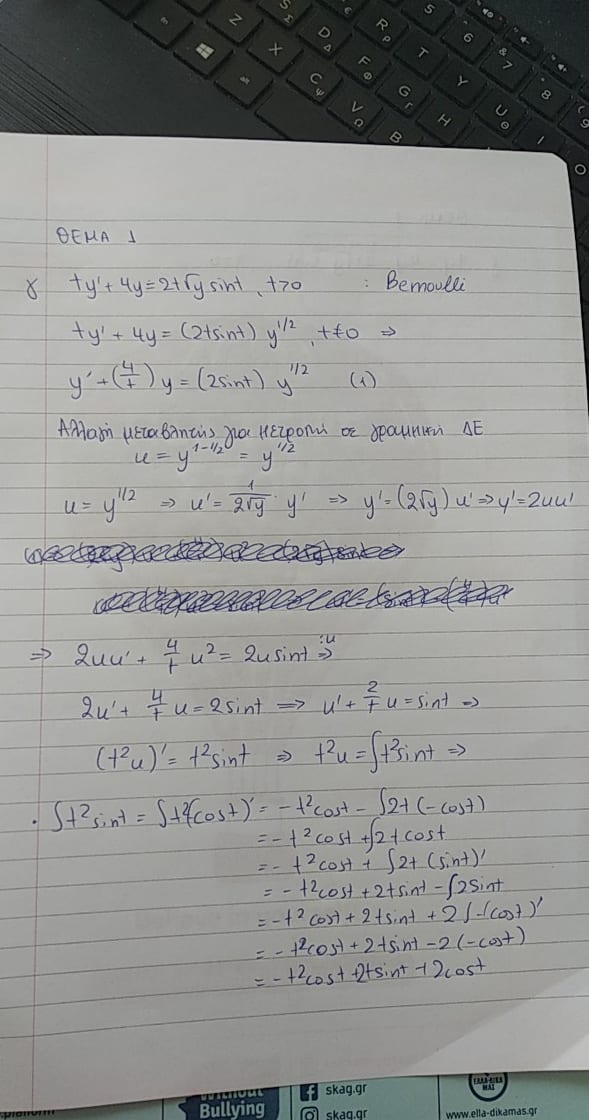 ΘΕΜΑ 1
γ ty' + 4y = 2t√y sint, t>0 : Bernoulli
ty' + 4y = (2tsint) y^1/2, t≠0 ⇒
y' + (4/t) y = (2sint) y^1/2 (1)
Αλλαγή μεταβλητής για μετροπή σε γραμμική ΔΕ
u = y^1-1/2 = y^1/2
u = y^1/2 ⇒ u' = 1/2√y · y' ⇒ y' = (2√y) u' ⇒ y' = 2uu'
⇒ 2uu' + 4/t u² = 2u sint ⇒ :u
2u' + 4/t u = 2sint ⇒ u' + 2/t u = sint ⇒
(t²u)' = t²sint ⇒ t²u = ∫t²sint ⇒
· ∫t²sint = ∫t²(-cost)' = -t²cost - ∫2t(-cost)
= -t²cost + ∫2tcost
= -t²cost + ∫2t(sint)'
= -t²cost + 2tsint - ∫2sint
= -t²cost + 2tsint + 2∫-(cost)'
= -t²cost + 2tsint - 2(-cost)
= -t²cost + 2tsint + 2cost
Bullying
skag.gr
skag.gr
www.ella-dikamas.gr
Z
X
C
V
B
D
F
G
H
R
T
Y
U
I
O
5
6
7
8
alt